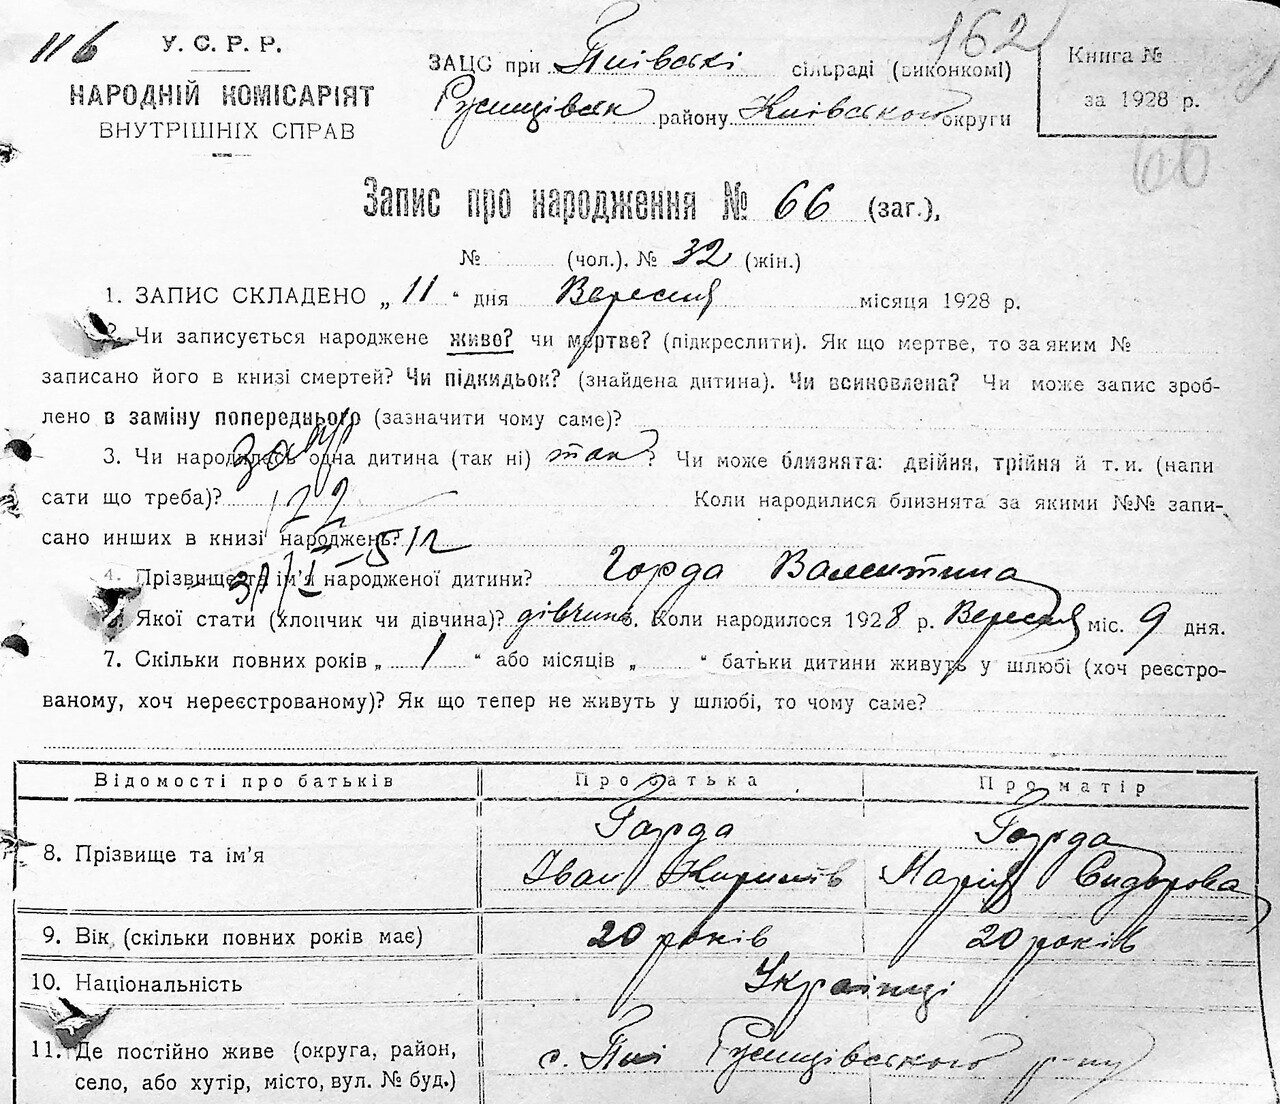 116
У. С. Р. Р.
НАРОДНІЙ КОМІСАРІЯТ
ВНУТРІШНІХ СПРАВ
162
ЗАЦС при Пиївські сільраді (виконкомі)
району Київського округи
Книга №
за 1928 р.
66
Запис про народження № 66 (заг.),
№ (чол.). № 32 (жін.)
1. ЗАПИС СКЛАДЕНО „ 11 “ дня Вересня місяця 1928 р.
2. Чи записується народжене живо? чи мертве? (підкреслити). Як що мертве, то за яким №
записано його в книзі смертей? Чи підкидьок? (знайдена дитина). Чи всиновлена? Чи може запис зроб-
лено в заміну попереднього (зазначити чому саме)?
3. Чи народилась одна дитина (так ні) так? Чи може близнята: двійня, трійня й т. и. (напи
сати що треба)? Коли народилися близнята за якими №№ запи-
сано инших в книзі народжень?
4. Прізвище та ім'я народженої дитини? Горда Валентина
Якої стати (хлопчик чи дівчина)? дівчина. Коли народилося 1928 р. Вересня міс. 9 дня.
7. Скільки повних років „ 1 “ або місяців „ “ батьки дитини живуть у шлюбі (хоч реєстро-
ваному, хоч нереєстрованому)? Як що тепер не живуть у шлюбі, то чому саме?
Відомості про батьків Про батька Про матір
8. Прізвище та ім'я Горда Горда
Іван Кирилів Марія Сидорова
9. Вік (скільки повних років має) 20 років 20 років
10. Національність Українці
11. Де постійно живе (округа, район,
село, або хутір, місто, вул. № буд.)
с. Пиї Ржищівського р-ну